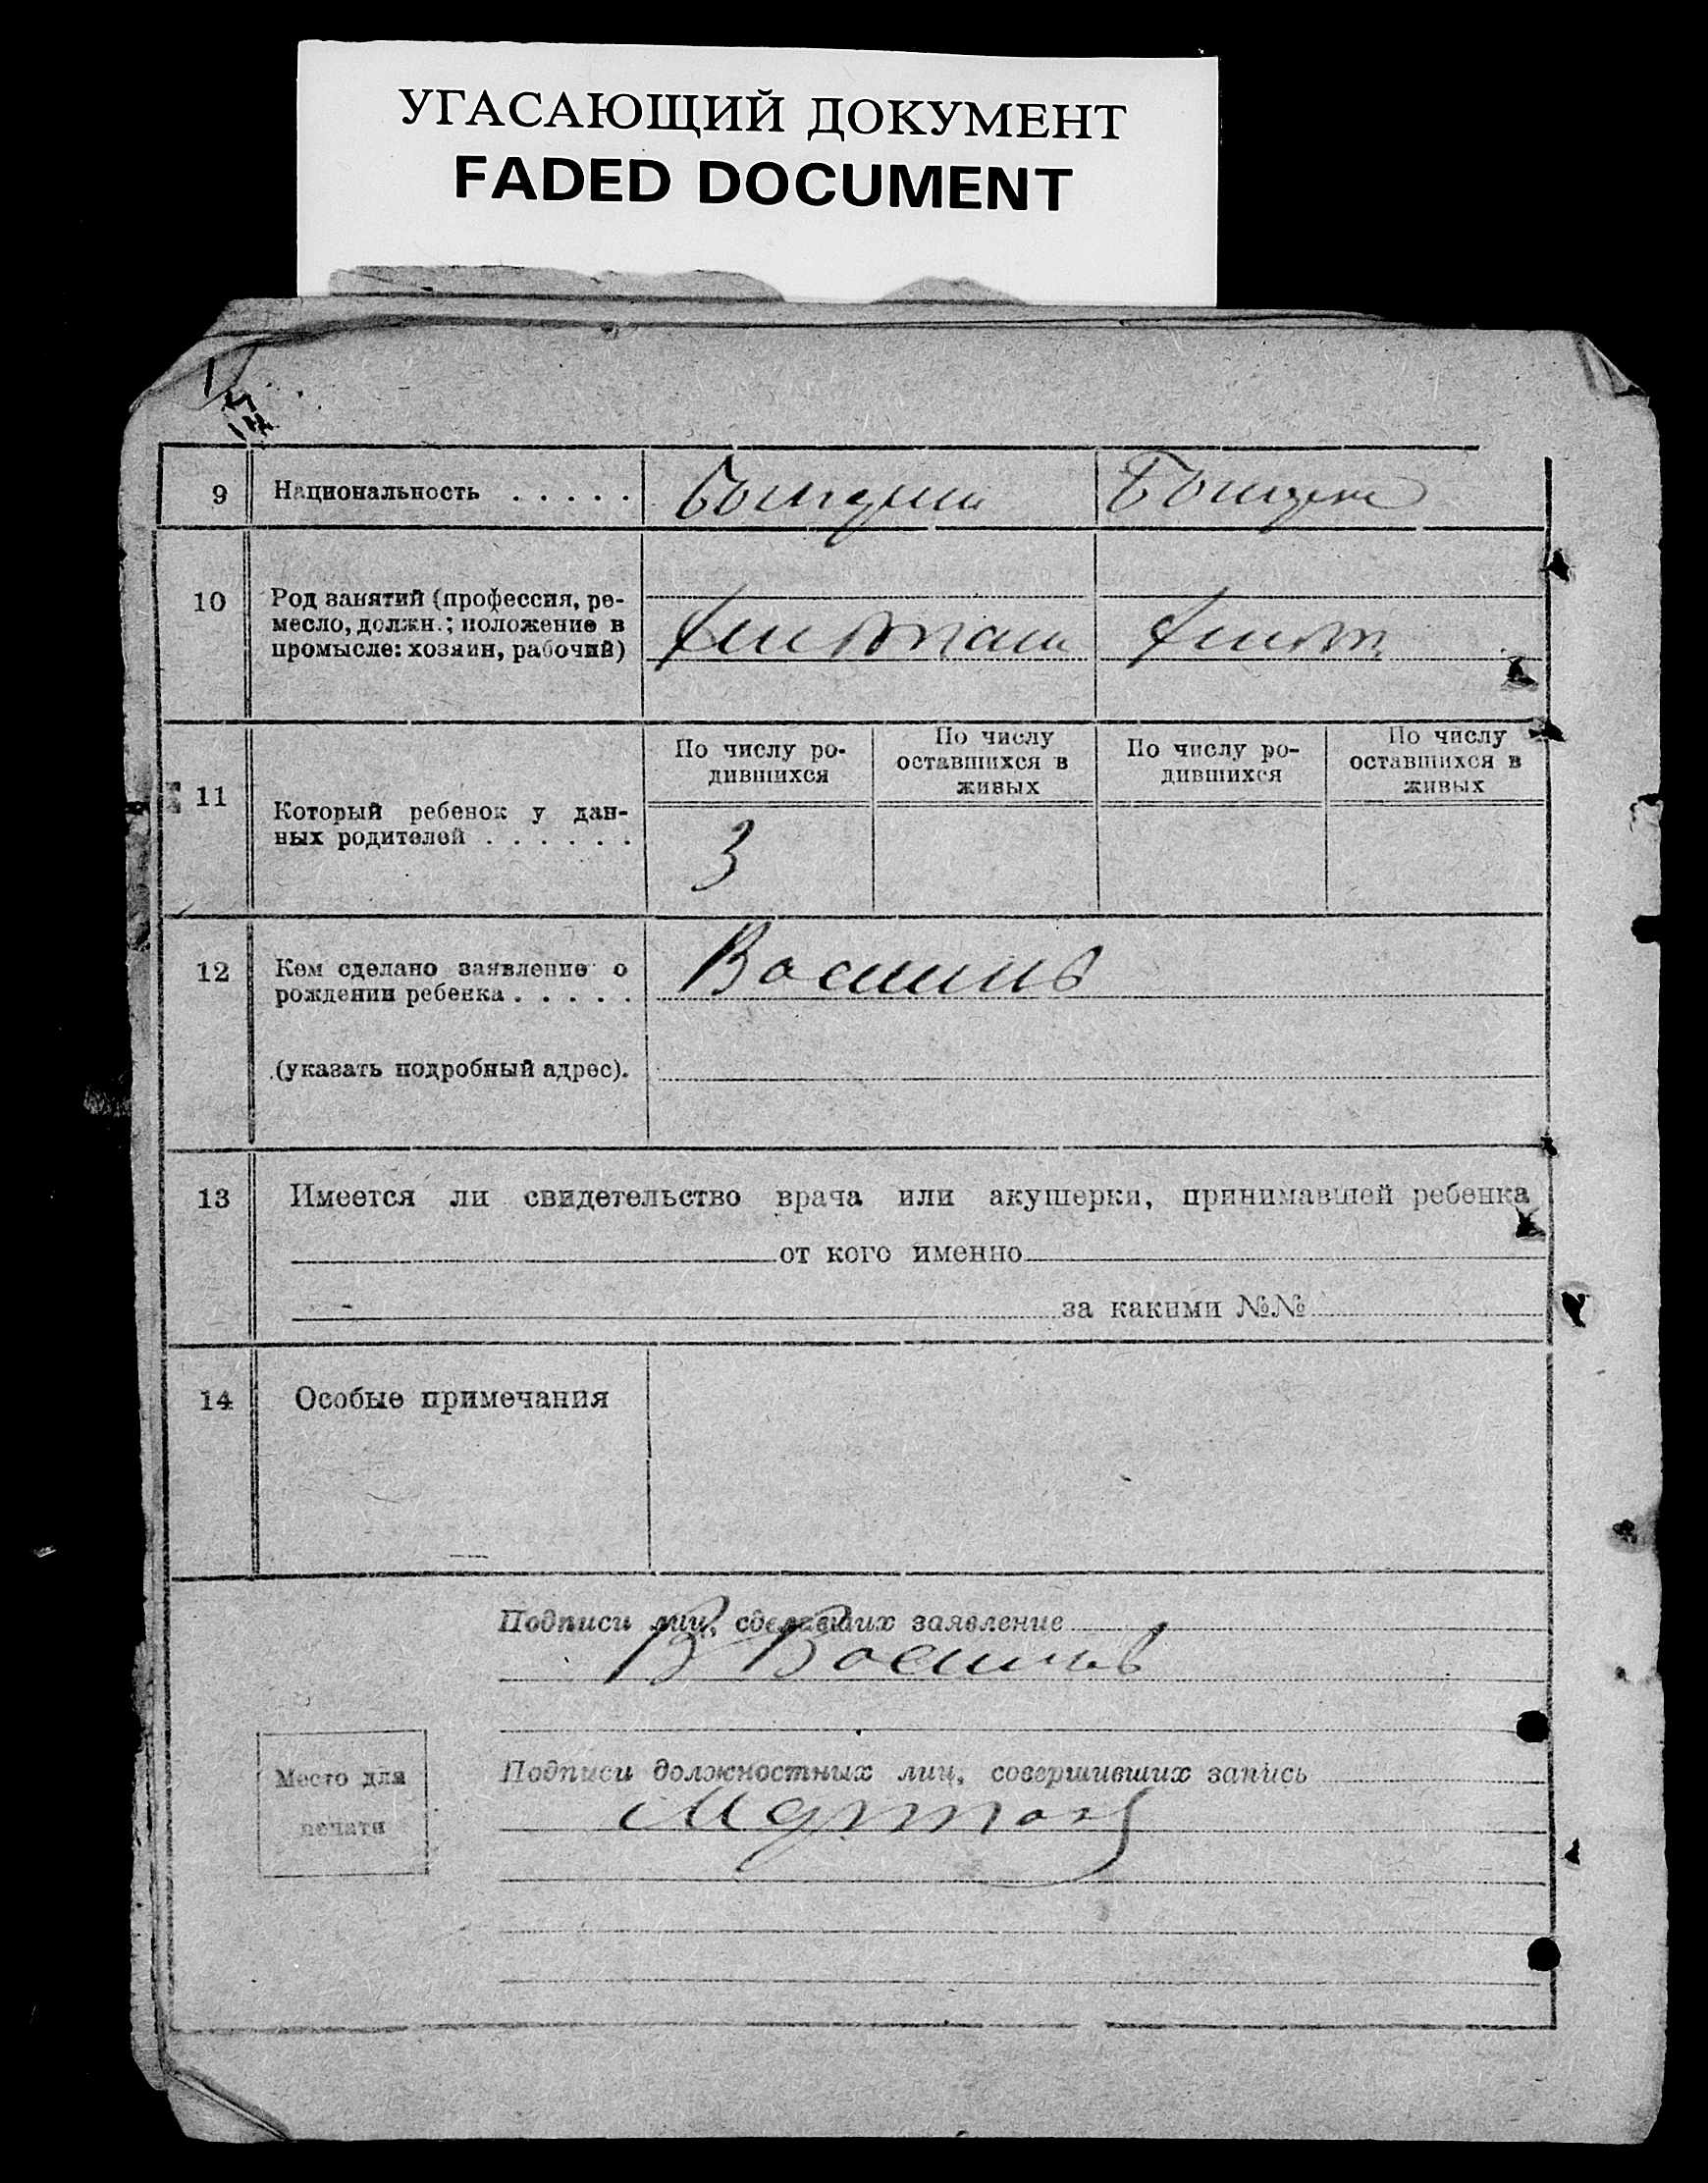 УГАСАЮЩИЙ ДОКУМЕНТ
FADED DOCUMENT
9 Национальность . . . . .
10 Род занятий (профессия, ре-
месло, должн.; положение в
промысле: хозяин, рабочий)
11 Который ребенок у дан-
ных родителей . . . . . .
По числу ро-
дившихся
По числу
оставшихся в
живых
По числу ро-
дившихся
По числу
оставшихся в
живых
3
12 Кем сделано заявление о
рождении ребенка . . . . .
(указать подробный адрес).
13 Имеется ли свидетельство врача или акушерки, принимавшей ребенка
от кого именно
за какими №№
14 Особые примечания
Подписи лиц, сделавших заявление
Место для
печати
Подписи должностных лиц, совершивших запись